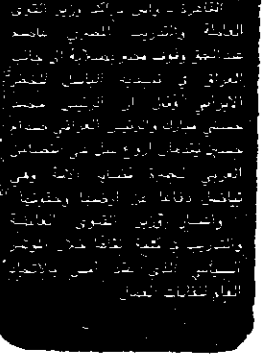 القاهرة - واس - أكد وزير القوى
العاملة والتدريب المصري عاصم
عبدالحق وقوف مصر بصلابة الى جانب
العراق في تصديه الباسل للخطر
الايراني وقال ان الرئيس محمد
حسني مبارك والرئيس العراقي صدام
حسين يقدمان أروع مثل في التضامن
العربي لخدمة قضايا الامة وهي
تناضل دفاعا عن ارضها وحقوقها
واشار وزير القوى العاملة
والتدريب في كلمة القاها خلال المؤتمر
السياسي الذي عقد امس بالاتحاد
العام لنقابات العمال